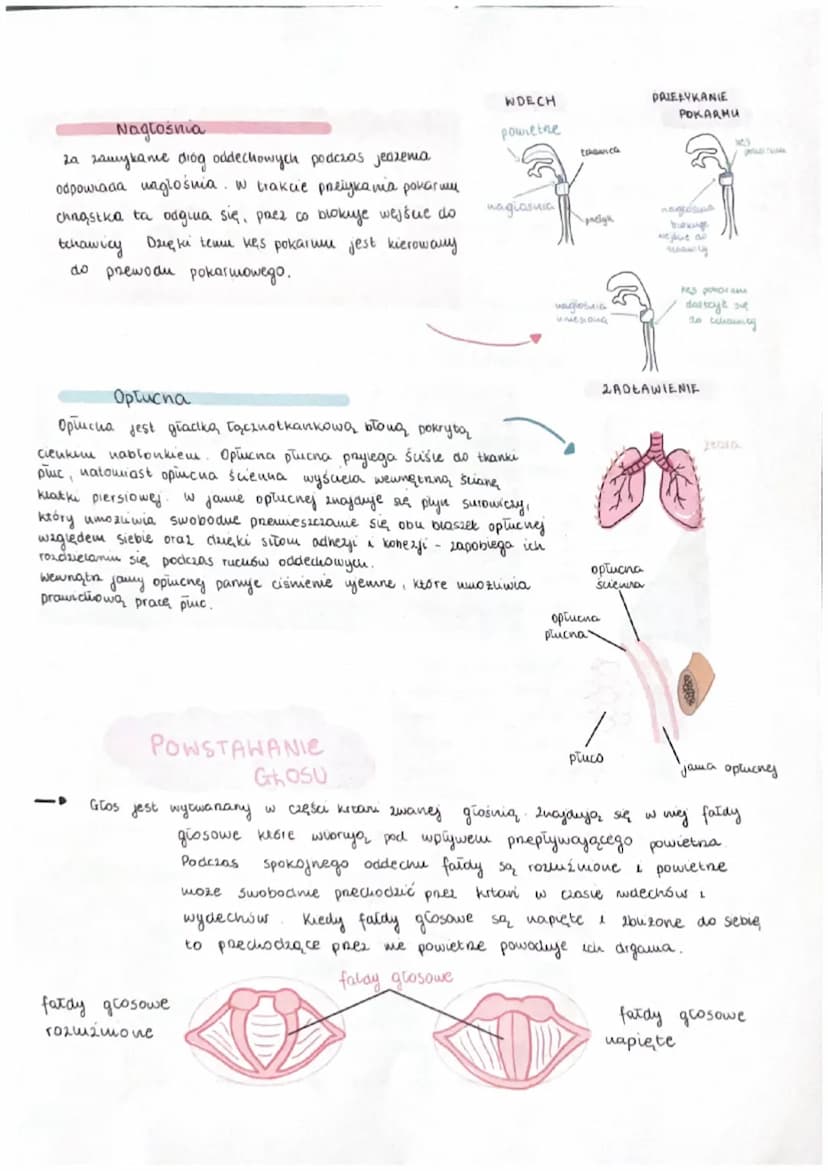 WDECH
PRZEŁYKANIE
POKARMU
Nagłośnia
powietrze
tchawica
kęs
pokarmu
za zamykanie dróg oddechowych podczas jedzenia
odpowiada nagłośnia. W trakcie przełykania pokarmu
chrząstka ta odgina się, przez co blokuje wejście do
tchawicy Dzięki temu kęs pokarmu jest kierowany
do przewodu pokarmowego.
nagłośnia
przełyk
nagłośnia
blokuje
wejście do
tchawicy
nagłośnia
uniesiona
kęs pokarmu
dostaje się
do tchawicy
ZADŁAWIENIE
Opłucna
Opłucna jest gładką łącznotkankową błoną pokrytą
cienkim nabłonkiem. Opłucna płucna przylega ściśle do tkanki
płuc, natomiast opłucna ścienna wyściela wewnętrzną ścianę
klatki piersiowej. W jamie opłucnej znajduje się płyn surowiczy,
który umożliwia swobodne przemieszczanie się obu blaszek opłucnej
względem siebie oraz dzięki siłom adhezji i kohezji - zapobiega ich
rozdzielaniu się podczas ruchów oddechowych.
Wewnątrz jamy opłucnej panuje ciśnienie ujemne, które umożliwia
prawidłową pracę płuc.
żebra
opłucna
ścienna
opłucna
płucna
płuco
jama opłucnej
POWSTAWANIE
GŁOSU
Głos jest wytwarzany w części krtani zwanej głośnią. Znajdują się w niej fałdy
głosowe które wibrują pod wpływem przepływającego powietrza
Podczas spokojnego oddechu fałdy są rozluźnione i powietrze
może swobodnie przechodzić przez krtań w czasie wdechów i
wydechów. Kiedy fałdy głosowe są napięte i zbliżone do siebie
to przechodzące przez nie powietrze powoduje ich drgania.
fałdy głosowe
fałdy głosowe
rozluźnione
fałdy głosowe
napięte